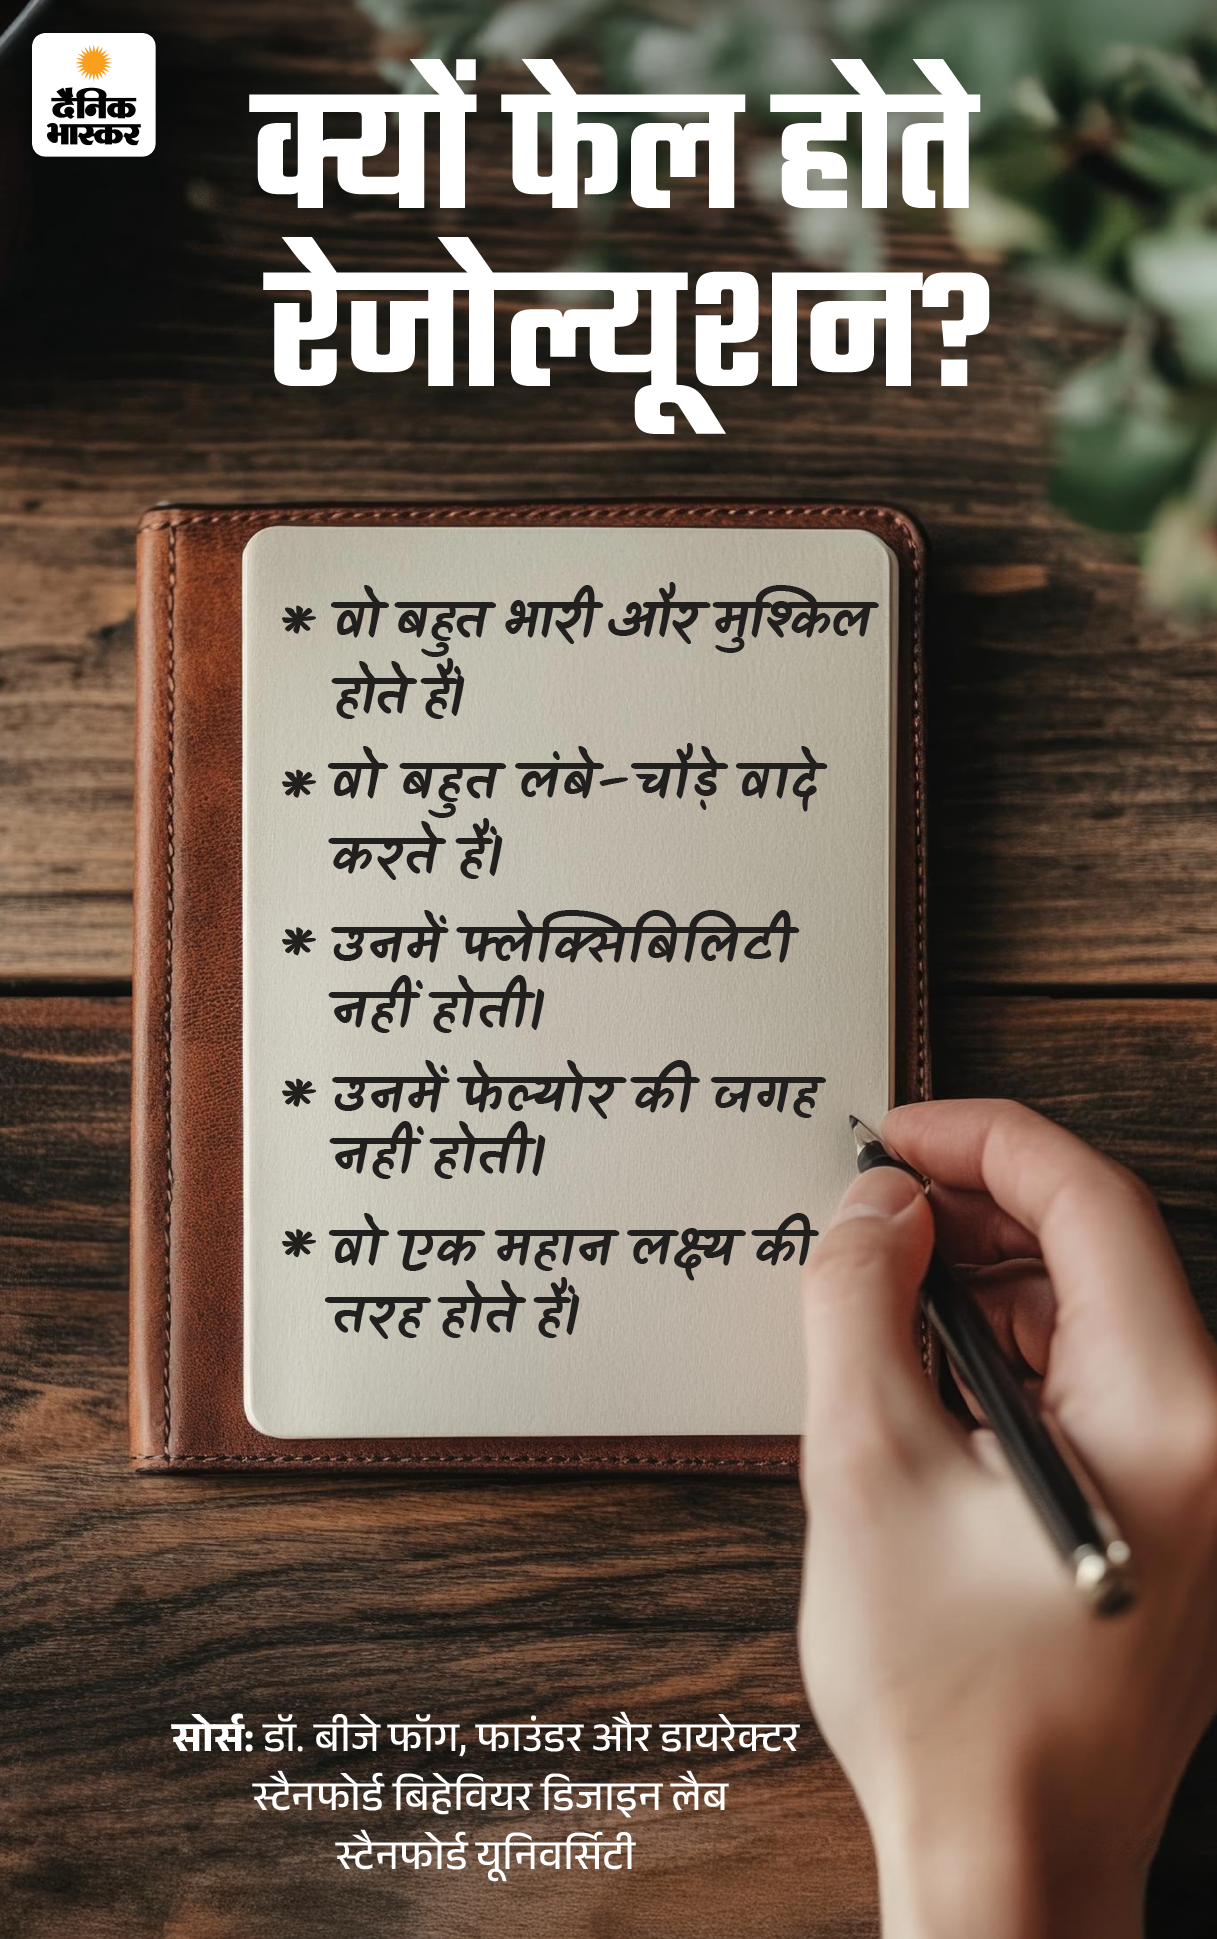 दैनिक
भास्कर
क्यों फेल होते
रेजोल्यूशन?
* वो बहुत भारी और मुश्किल
होते हैं।
* वो बहुत लंबे-चौड़े वादे
करते हैं।
* उनमें फ्लेक्सिबिलिटी
नहीं होती।
* उनमें फेल्योर की जगह
नहीं होती।
* वो एक महान लक्ष्य की
तरह होते हैं।
सोर्स: डॉ. बीजे फॉग, फाउंडर और डायरेक्टर
स्टैनफोर्ड बिहेवियर डिजाइन लैब
स्टैनफोर्ड यूनिवर्सिटी